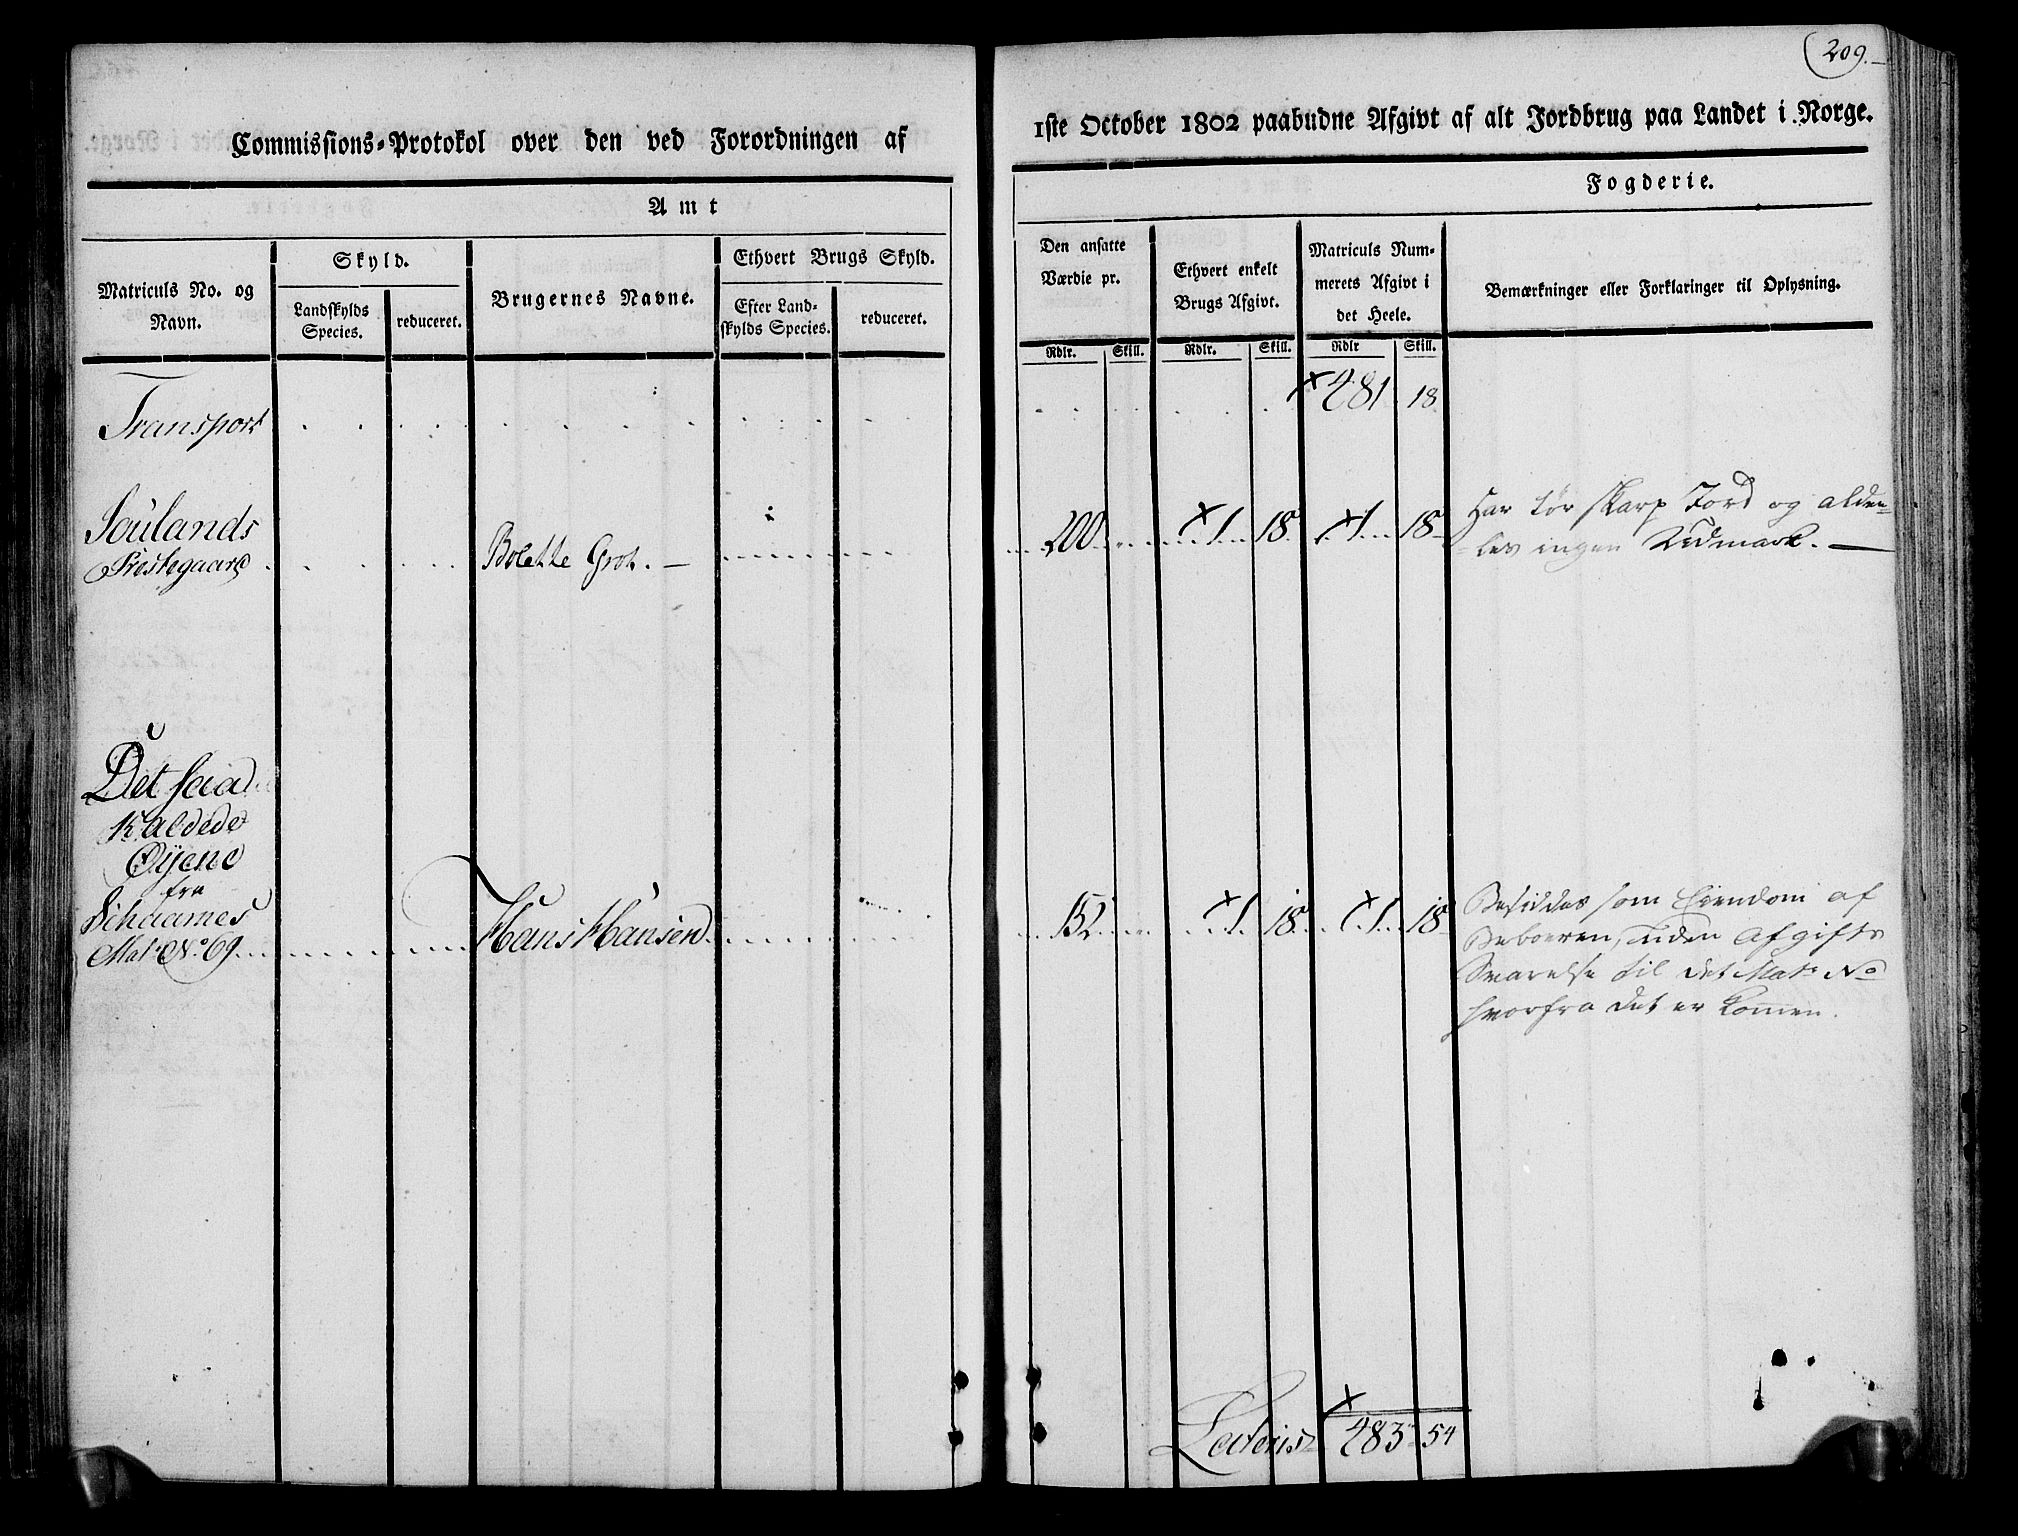 209.
Commissions-Protokol over den ved Forordningen af
1ste October 1802 paabudne Afgivt af alt Jordbrug paa Landet i Norge.
Amt
Fogderie.
Matriculs No. og Navn.
Skyld.
Landskylds Species.
reduceret.
Brugernes Navne.
Ethvert Brugs Skyld.
Efter Land-
skylds Species.
reduceret.
Den ansatte
Værdie pr.
Ethvert enkelt
Brugs Afgivt.
Matriculs Num-
merets Afgivt i
det Heele.
Bemærkninger eller Forklaringer til Oplysning.
Rdlr. Skill. Rdlr. Skill. Rdlr Skill.
Transport 281 18
Soulands
Præstegaard Bolette Grot. 200 1 18 1 18
Har tør skarp Jord og alde-
les ingen Udmark.
Det saa
Kaldede
Øÿene
fra
Schaames
Mat: No. 69 Hans Hansen 152 1 18 1 18
Besiddes som Eiendom af
Beboeren, uden Afgifts
Svarelse til det Mat: No
hvorfra det er komen.
Lateris 283 54